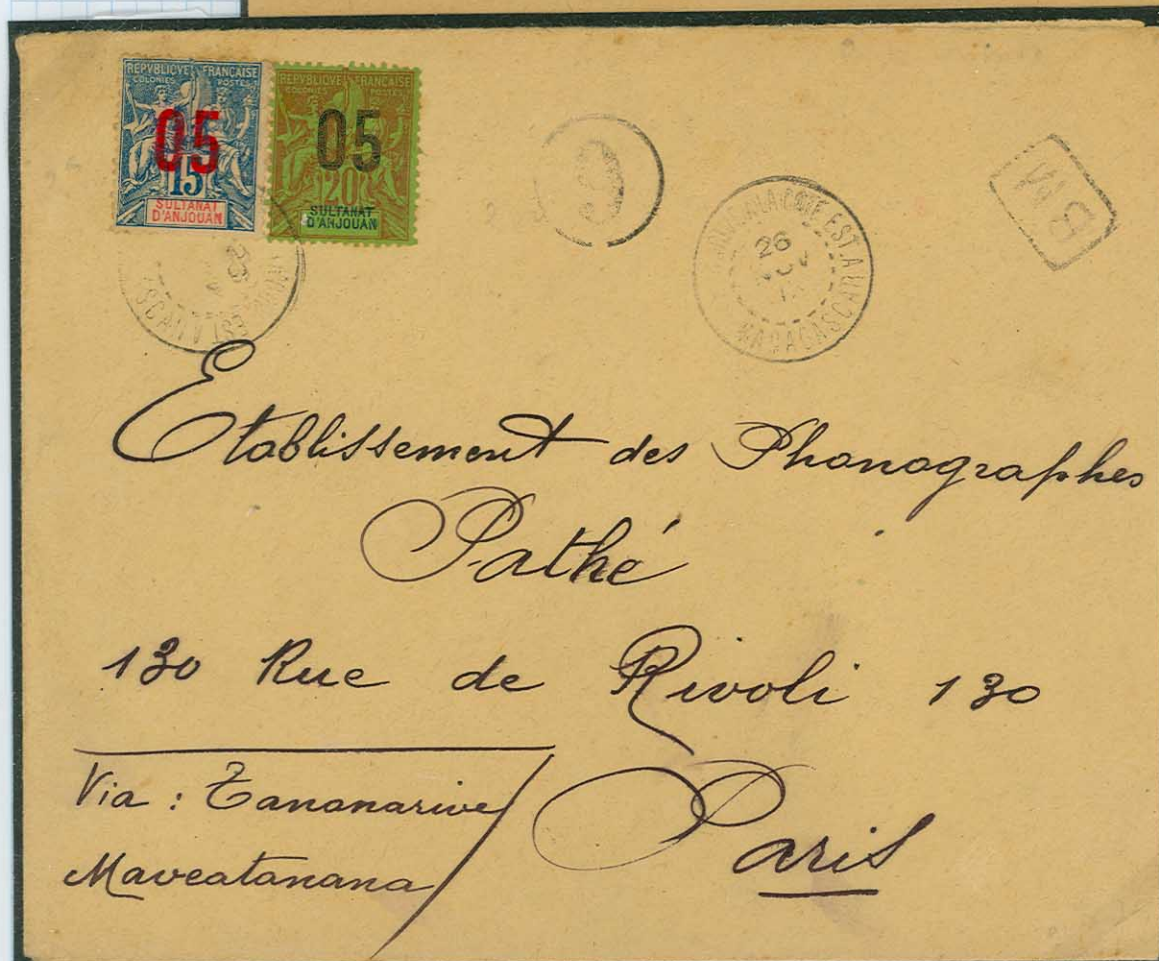 REPVBLIQVE FRANÇAISE
COLONIES POSTES
05
15
SULTANAT
D'ANJOUAN
REPVBLIQVE FRANÇAISE
COLONIES POSTES
05
20
SULTANAT
D'ANJOUAN
EST A
26
MADAGASCAR
BM
Etablissement des Phonographes
Pathé
130 Rue de Rivoli 130
Via : Tananarive
Paris
Maveatanana